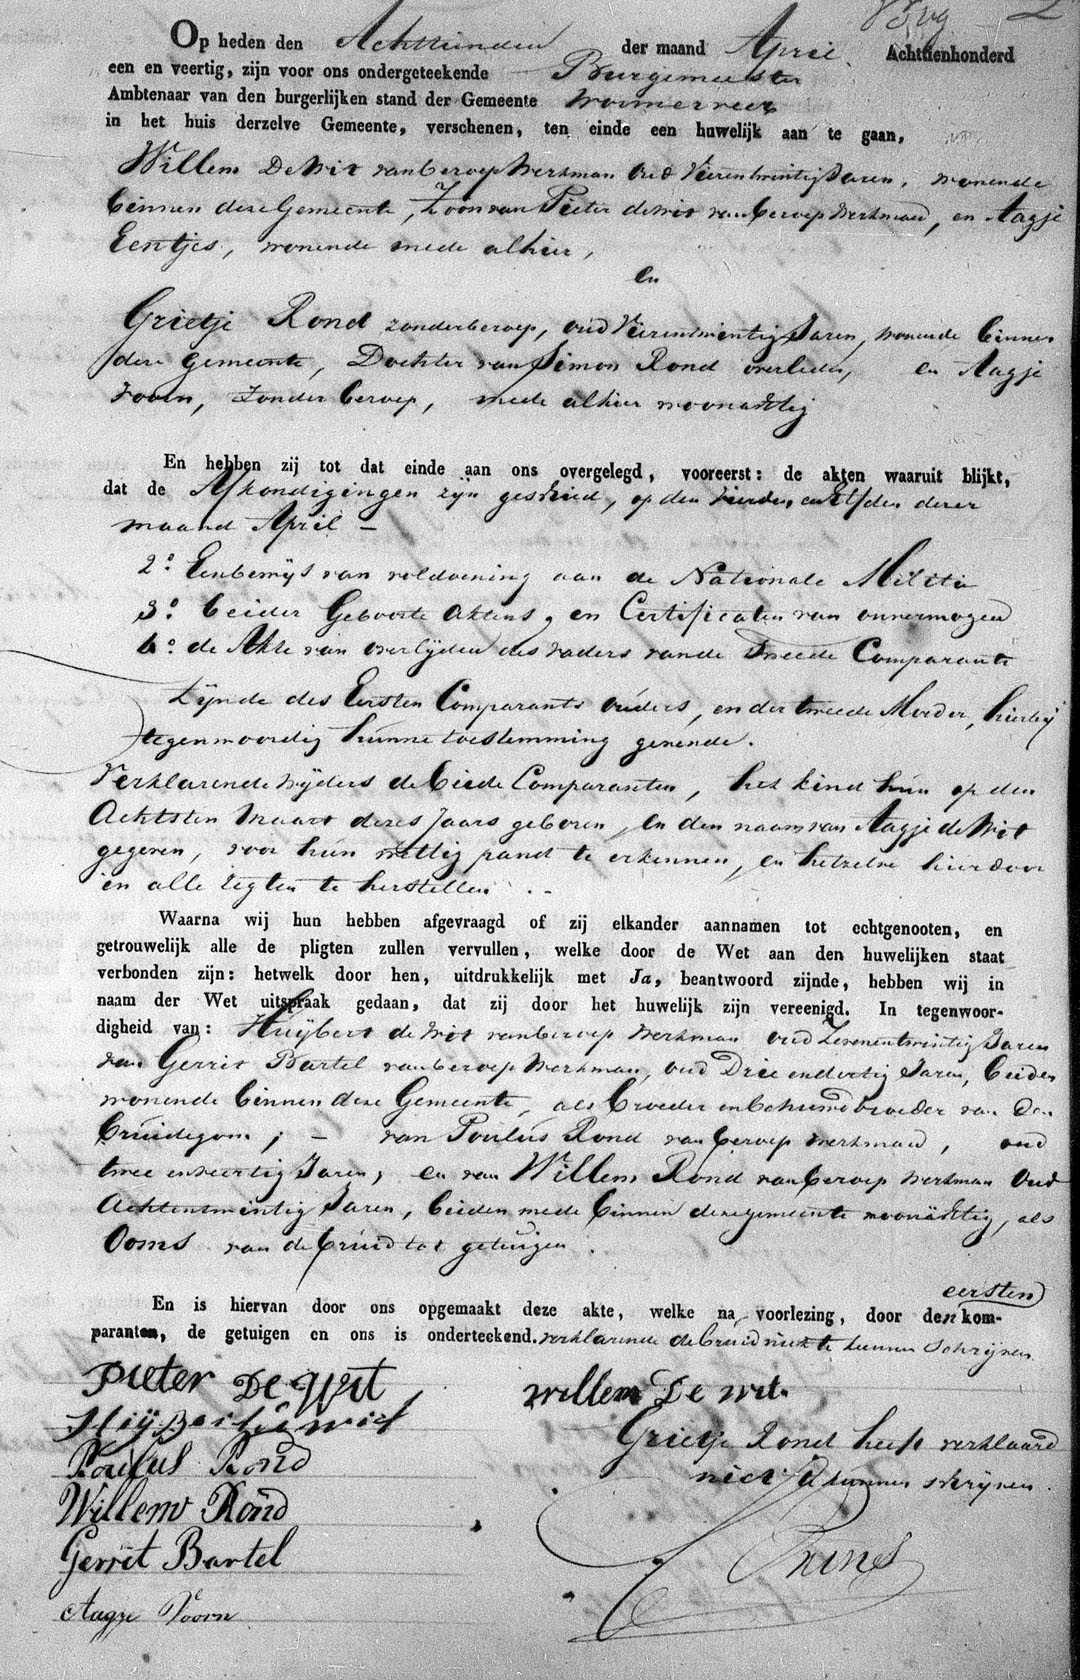 Op heden den Achttienden der maand April Achttienhonderd
een en veertig, zijn voor ons ondergeteekende Burgemeester
Ambtenaar van den burgerlijken stand der Gemeente Wormerveer
in het huis derzelve Gemeente, verschenen, ten einde een huwelijk aan te gaan,
Willem De Wit van beroep Werkman oud Vierentwintig Jaren, wonende
binnen deze Gemeente, Zoon van Pieter de Wit van beroep Werkman, en Aagje
Eentjes, wonende mede alhier,
en
Grietje Rond zonder beroep, oud Vierentwintig Jaren, wonende binnen
deze gemeente, Dochter van Simon Rond overleden, en Aagje
Voorn, zonder beroep, mede alhier woonachtig
En hebben zij tot dat einde aan ons overgelegd, vooreerst: de akten waaruit blijkt,
dat de Afkondigingen zijn geschied, op den Vierden en Elfden dezer
maand April -
2.o Een bewijs van voldoening aan de Nationale Militie
3.o beider Geboorte Aktens, en Certificaten van onvermogen
4.o de Akte van overlijden des vaders van de Tweede Comparante
Zijnde des Eersten Comparants ouders, en der tweede Moeder, hierbij
tegenwoordig hunne toestemming gevende.
Verklarende wijders de beide Comparanten, het kind hun op den
Achtsten Maart dezes Jaars geboren, en den naam van Aagje de Wit
gegeven, voor hun wettig pand te erkennen, en hetzelve hierdoor
in alle regten te herstellen. -
Waarna wij hun hebben afgevraagd of zij elkander aannamen tot echtgenooten, en
getrouwelijk alle de pligten zullen vervullen, welke door de Wet aan den huwelijken staat
verbonden zijn: hetwelk door hen, uitdrukkelijk met Ja, beantwoord zijnde, hebben wij in
naam der Wet uitspraak gedaan, dat zij door het huwelijk zijn vereenigd. In tegenwoor-
digheid van: Huijbert de Wit van beroep Werkman oud Zevenentwintig Jaren
van Gerrit Bartel van beroep Werkman, oud Drie en dertig Jaren, beiden
wonende binnen deze Gemeente, als broeder en behuwdbroeder van den
bruidegom; - van Poulus Rond van beroep werkman, oud
twee en veertig Jaren, en van Willem Rond van beroep Werkman Oud
Achtentwintig Jaren, beiden mede binnen deze gemeente woonachtig, als
Ooms van de bruid tot getuigen.
eersten
En is hiervan door ons opgemaakt deze akte, welke na voorlezing, door den kom-
paranten, de getuigen en ons is onderteekend. verklarende de bruid niet te kunnen schrijven
Pieter De Wit
willem De wit.
Huijbert de Wit
Grietje Rond heeft verklaard
Poulus Rond
niet te kunnen schrijven.
Willem Rond
Gerrit Bartel
Aagje Voorn